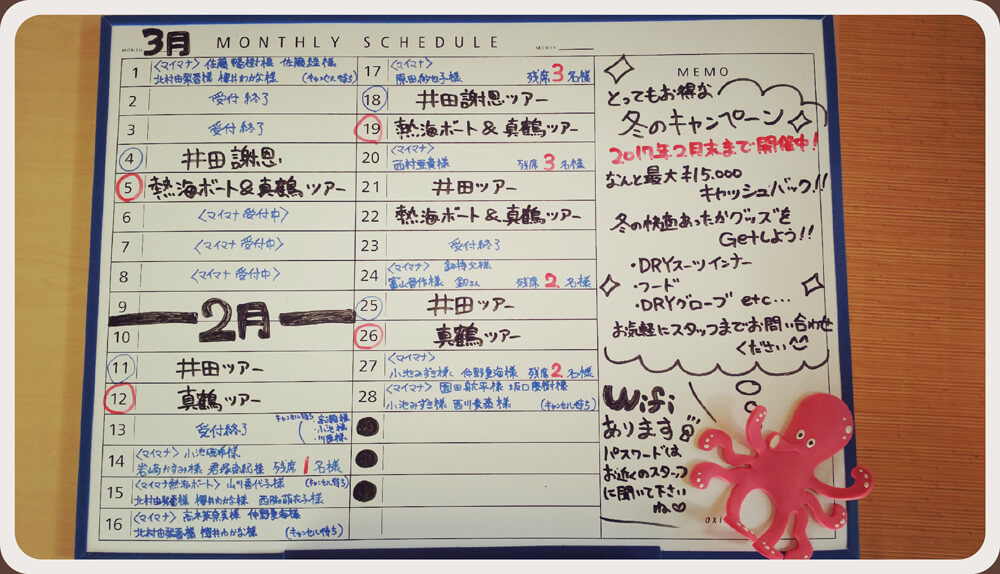 MONTH 3月 MONTHLY SCHEDULE MONTH
1 〈マイマナ〉
北村由梨香様 櫻井わかな様 (キャンセル待ち)
2 受付終了
3 受付終了
4 井田謝恩
5 熱海ボート&真鶴ツアー
6 〈マイマナ受付中〉
7 〈マイマナ受付中〉
8 〈マイマナ受付中〉
9
2月
10
11 井田ツアー
12 真鶴ツアー
13 受付終了 キャンセル待ち
14 〈マイマナ〉
残席1名様
15 〈マイマナ熱海ボート〉 (キャンセル待ち)
北村由梨香様 櫻井わかな様
16 〈マイマナ〉
北村由梨香様 櫻井わかな様 (キャンセル待ち)
17 〈マイマナ〉
残席3名様
18 井田謝恩ツアー
19 熱海ボート&真鶴ツアー
20 〈マイマナ〉
残席3名様
21 井田ツアー
22 熱海ボート&真鶴ツアー
23 受付終了
24 〈マイマナ〉
残席2名様
25 井田ツアー
26 真鶴ツアー
27 〈マイマナ〉
小池みずき様 仲野夏海様 残席2名様
28 〈マイマナ〉
小池みずき様 (キャンセル待ち)
MEMO
とってもお得な
冬のキャンペーン
2017年2月末まで開催中!
なんと最大¥15.000
キャッシュバック!!
冬の快適あったかグッズを
Getしよう!!
・DRYスーツインナー
・フード
・DRYグローブ etc...
お気軽にスタッフまでお問い合わせ
ください
Wifi
あります
パスワードは
お近くのスタッフ
に聞いて下さい
ね♡